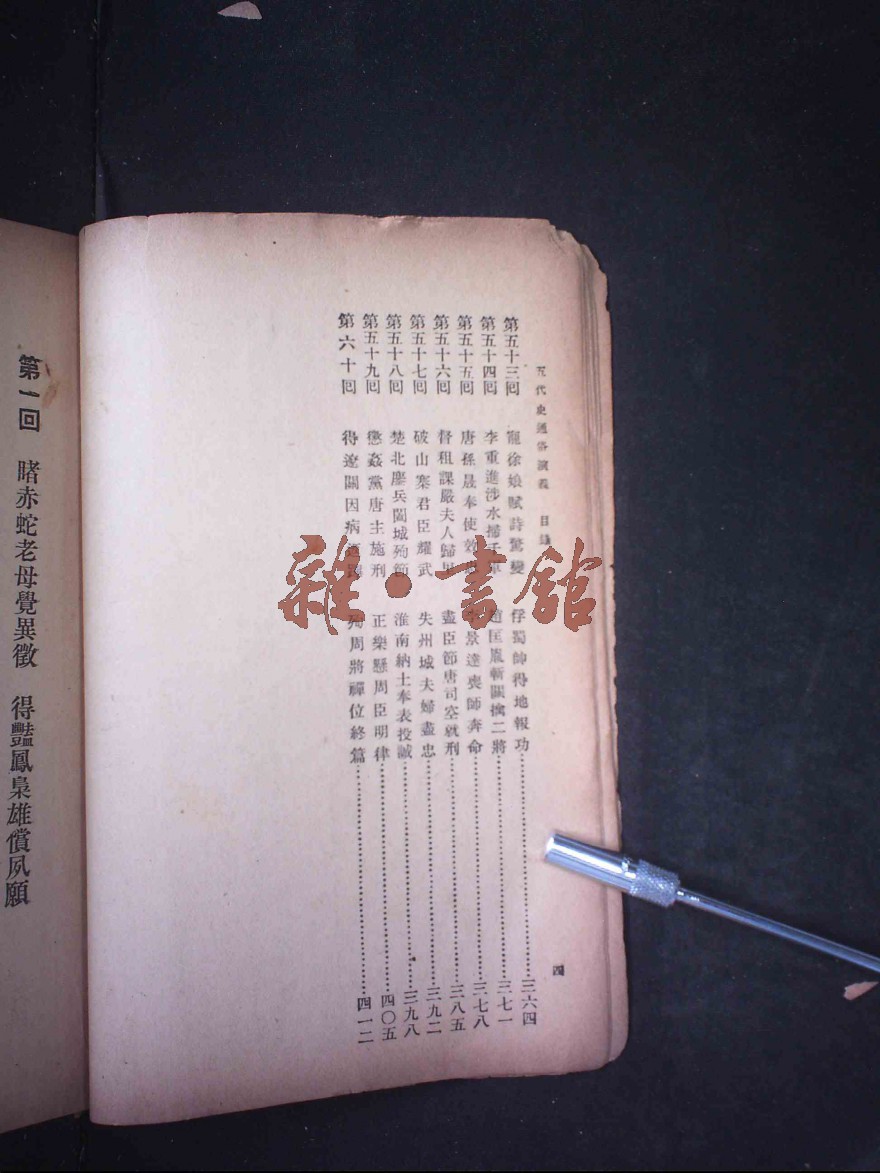 五代史通俗演義　目錄
第五十三回　寵徐娘賦詩驚變　俘蜀帥得地報功……三六四
第五十四回　李重進涉水掃千軍　趙匡胤斬關擒二將……三七一
第五十五回　唐孫晟奉使效　景達喪師奔命……三七八
第五十六回　督租課嚴夫人歸里　盡臣節唐司空就刑……三八五
第五十七回　破山寨君臣耀武　失州城夫婦盡忠……三九二
第五十八回　楚北鏖兵闔城殉節　淮南納土奉表投誠……三九八
第五十九回　懲姦黨唐主施刑　正樂懸周臣明律……四〇五
第六十回　得遼關因病　周將禪位終篇……四一二
四
第一回　睹赤蛇老母覺異徵　得豔鳳梟雄償夙願
雜·書館